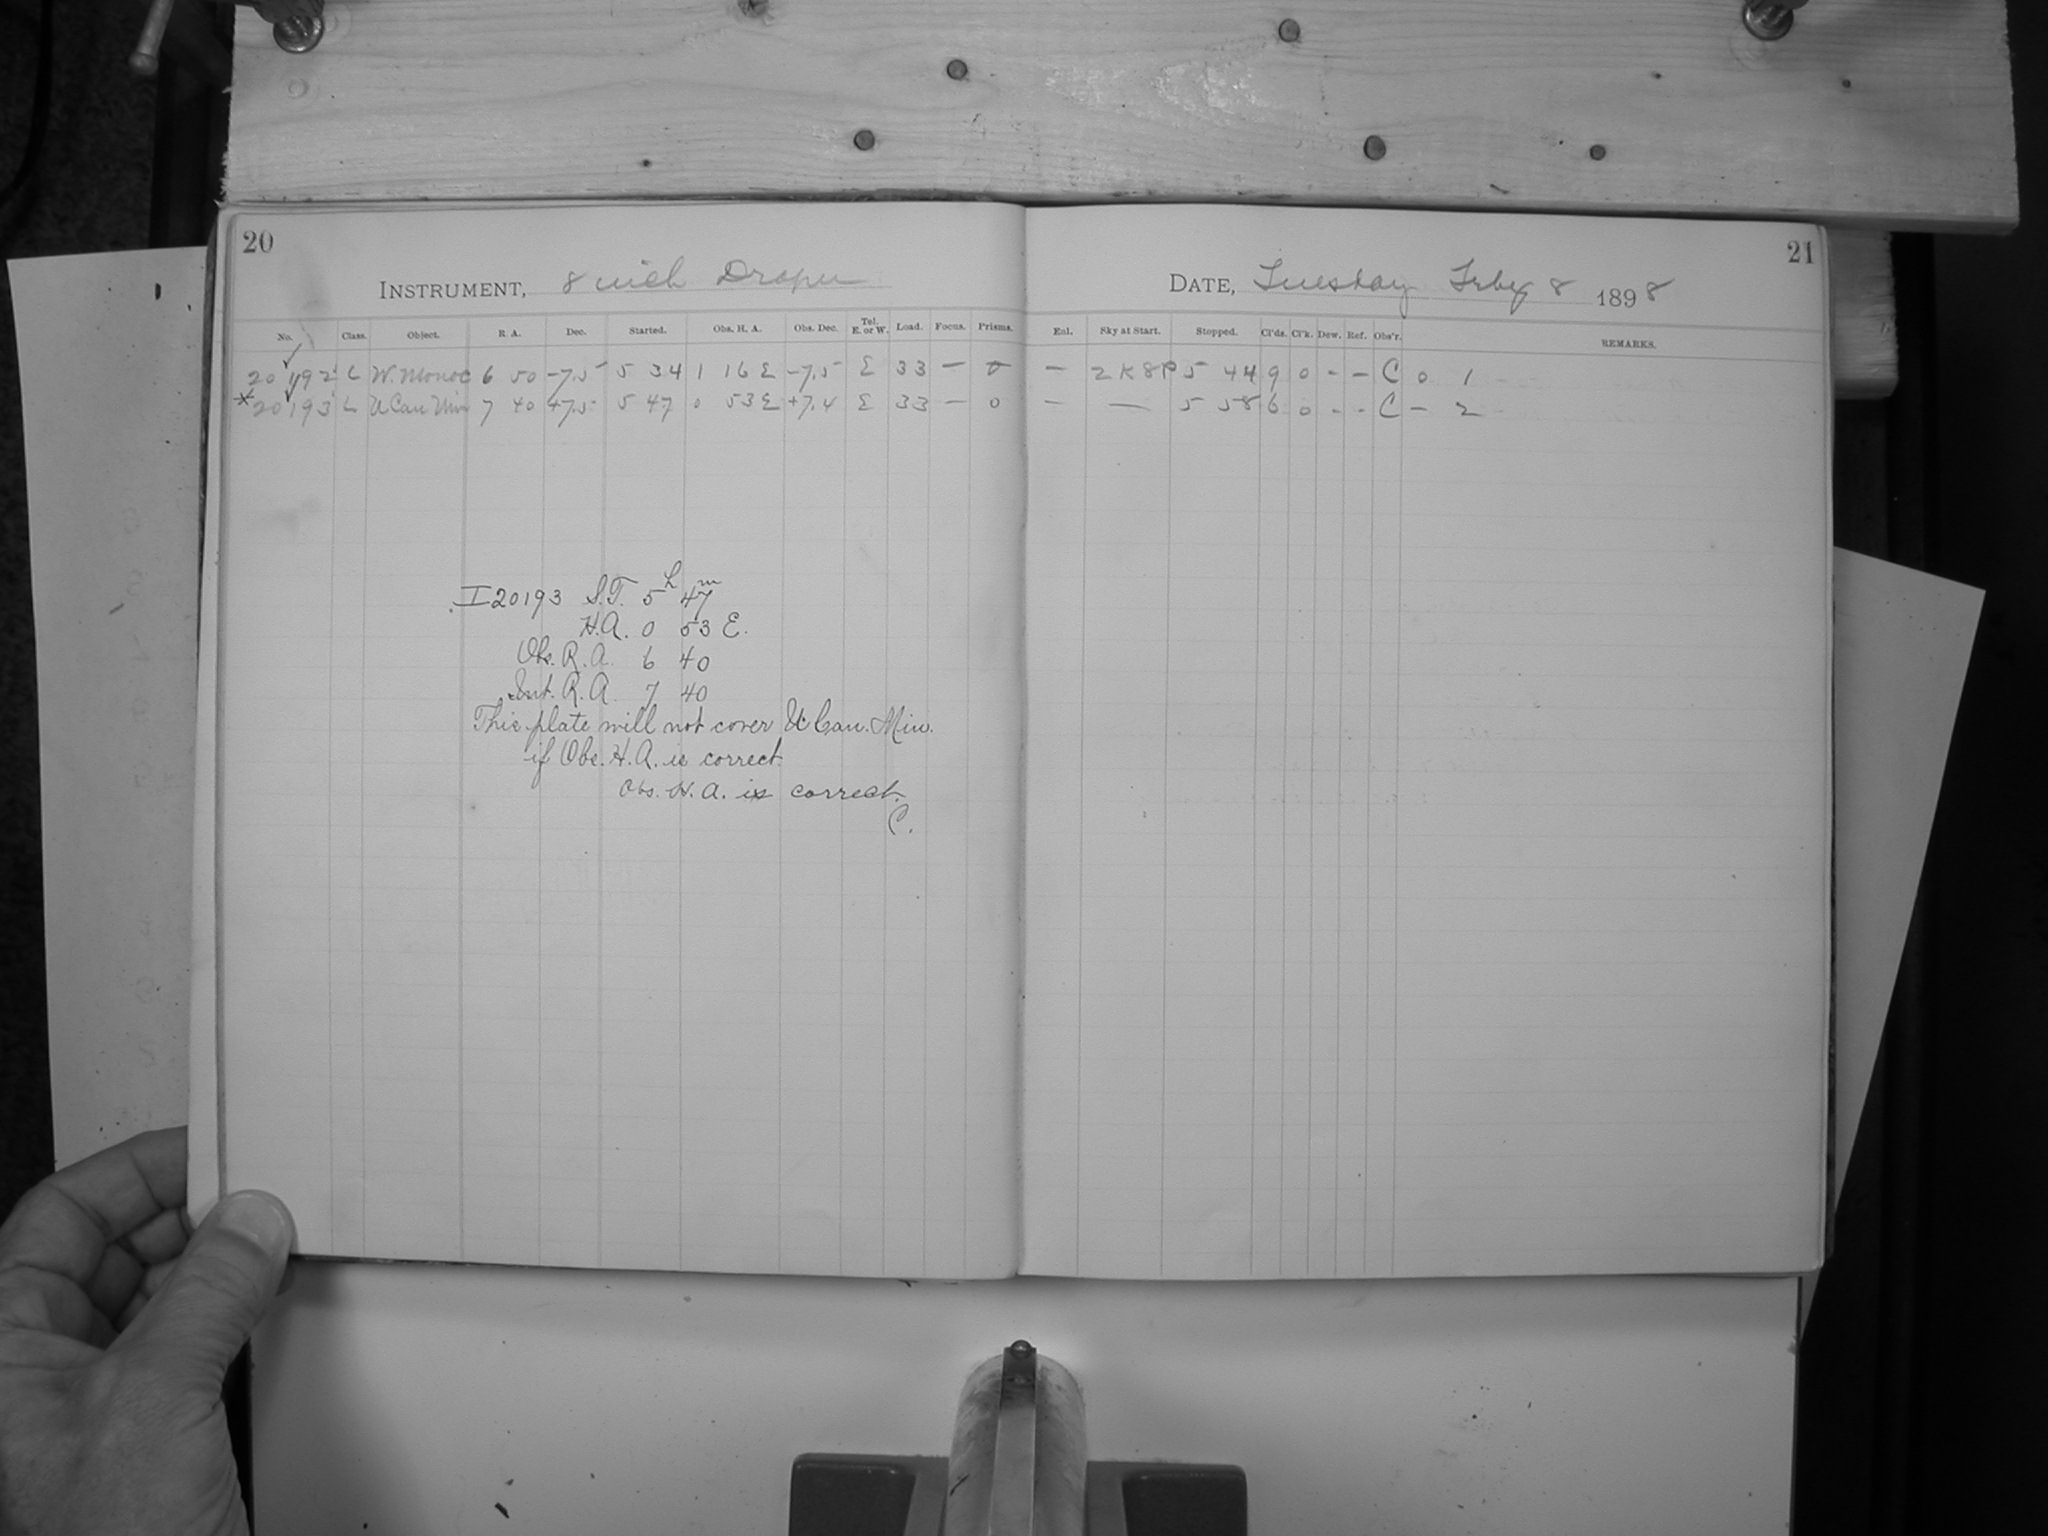 20
INSTRUMENT, 8 inch Draper
No. Class. Object. R. A. Dec. Started. Obs. H. A. Obs. Dec. Tel. E. or W. Load. Focus. Prisms.
20192 L W. Monoc 6 50 -7.5 5 34 1 16 E -7.5 E 33 — 0
* 20193 L U Can Min 7 40 +7.5 5 47 0 53 E +7.4 E 33 — 0
I 20193 S.T. 5h 47m
H.A. 0 53 E.
Obs. R.A. 6 40
Int. R.A. 7 40
This plate will not cover U Can. Min.
if Obs. H.A. is correct.
Obs. H.A. is correct.
C.
21
DATE, Tuesday Feby 8 1898
Enl. Sky at Start. Stopped. Cl'ds. Cl'k. Dew. Ref. Obs'r. REMARKS.
— 2 K 8 P 5 44 9 0 - — C 0 1
— — 5 58 6 0 - - C — 2